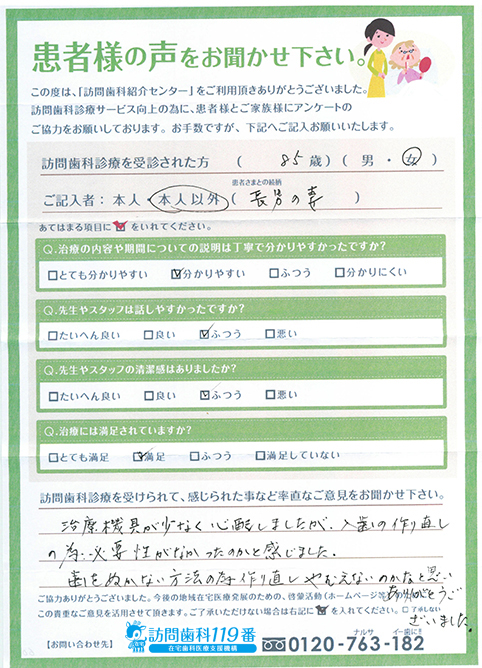 患者様の声をお聞かせ下さい。
この度は、「訪問歯科紹介センター」をご利用頂きありがとうございました。
訪問歯科診療サービス向上の為に、患者様とご家族様にアンケートの
ご協力をお願いしております。お手数ですが、下記へご記入お願いいたします。
訪問歯科診療を受診された方 ( 85 歳) ( 男 ・ 女 )
患者さまとの続柄
ご記入者：本人・本人以外 ( 長男の妻 )
あてはまる項目に☑をいれてください。
Q.治療の内容や期間についての説明は丁寧で分かりやすかったですか？
□とても分かりやすい ☑分かりやすい □ふつう □分かりにくい
Q.先生やスタッフは話しやすかったですか？
□たいへん良い □良い ☑ふつう □悪い
Q.先生やスタッフの清潔感はありましたか？
□たいへん良い □良い ☑ふつう □悪い
Q.治療には満足されていますか？
□とても満足 ☑満足 □ふつう □満足していない
訪問歯科診療を受けられて、感じられた事など率直なご意見をお聞かせ下さい。
治療機具が少なく心配しましたが、入歯の作り直し
の為、必要性がなかったのかと感じました.
歯をぬかない方法の為 作り直し やむえないのかなと思い
ありがとうご
ざいました。
ご協力ありがとうございました。今後の地域在宅医療発展のための、啓蒙活動(ホームページ等)
この貴重なご意見を活用させて頂きます。ご了承いただけない場合は右記に☑を入れてください。 □了承しない
【お問い合わせ先】 訪問歯科119番
在宅歯科医療支援機構
ナルサ イー歯に！
0120-763-182